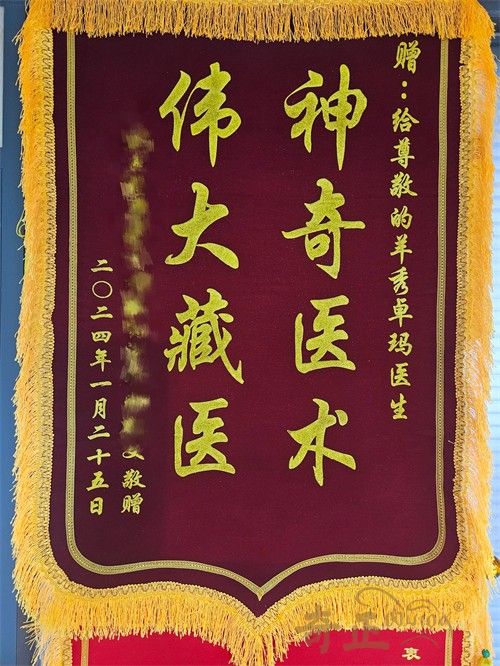 赠：给尊敬的羊秀卓玛医生
神奇医术
伟大藏医
敬赠
二〇二四年一月二十五日
奇正
衷